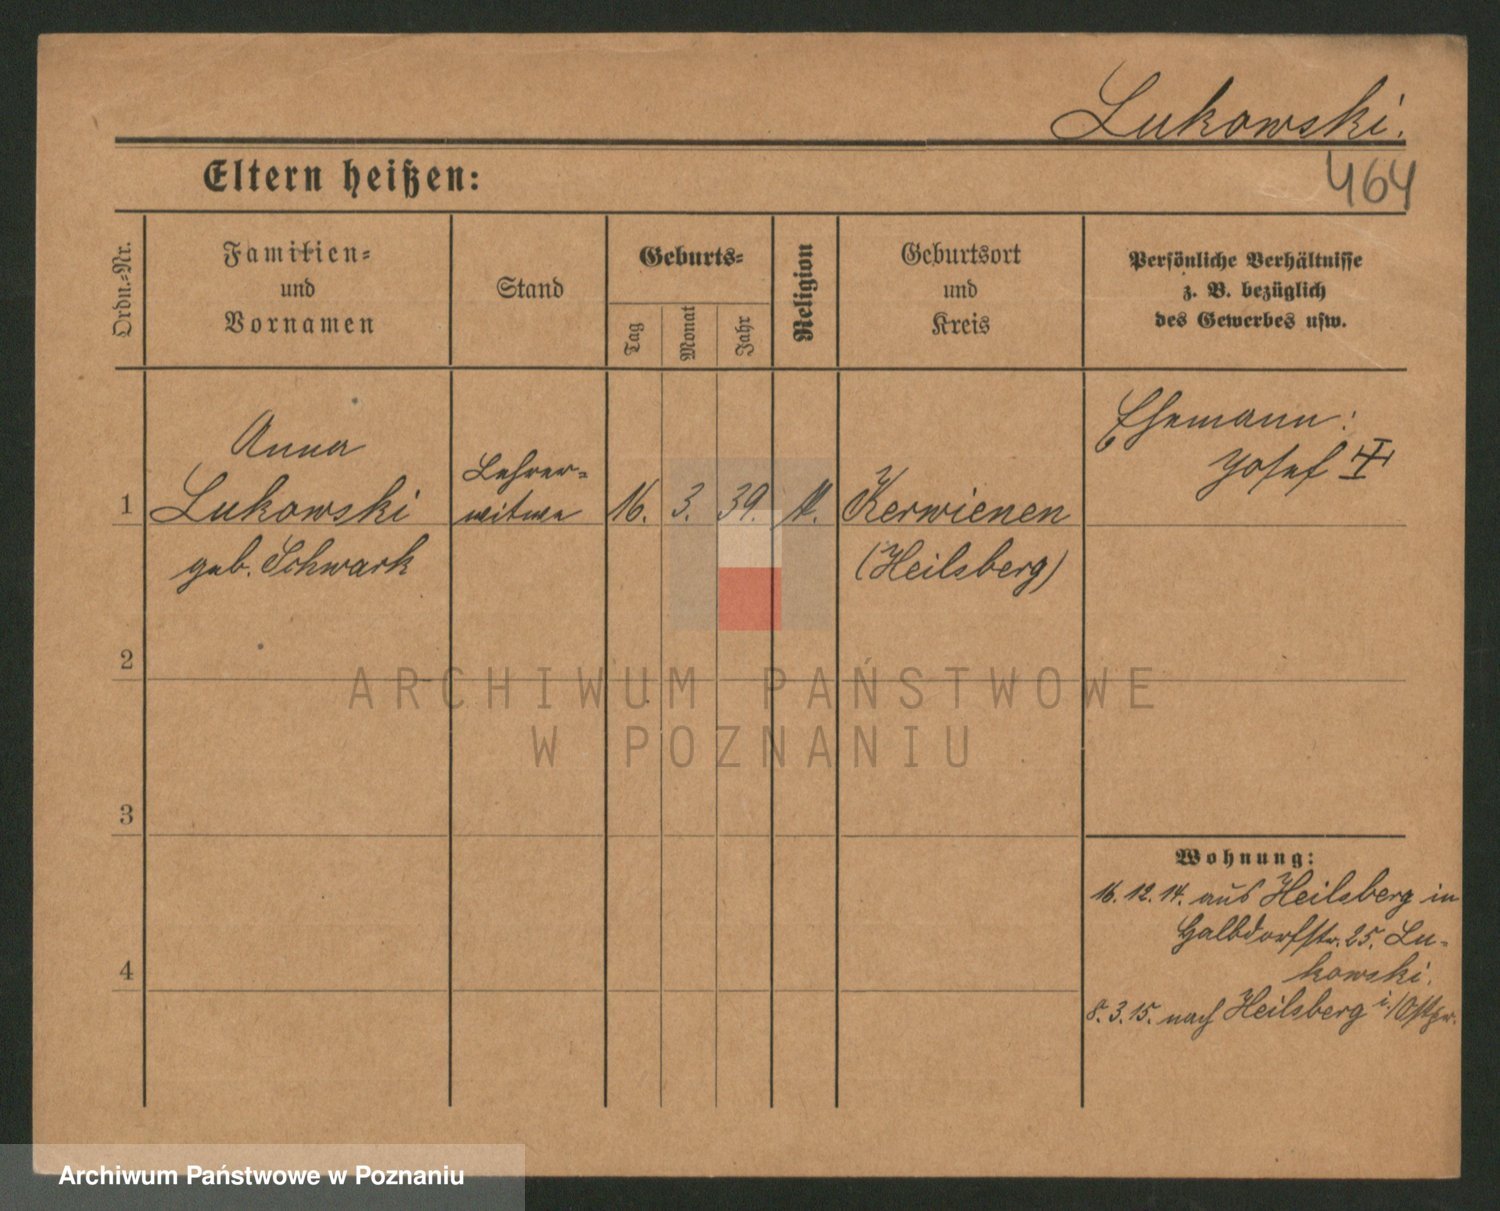 Lukowski.
464
Eltern heißen:
Ordn.-Nr.
Familien-
und
Vornamen
Stand
Geburts-
Tag
Monat
Jahr
Religion
Geburtsort
und
Kreis
Persönliche Verhältnisse
z. B. bezüglich
des Gewerbes usw.
1
Anna
Lukowski
geb. Schwark
Lehrer-
witwe
16.
3.
39.
Kerwienen
(Heilsberg)
Ehemann:
Josef
2
3
4
Wohnung:
16.12.14. aus Heilsberg in
Halbdorfstr. 25. Lu-
kowski.
8.3.15. nach Heilsberg i./Ostpr.
ARCHIWUM PAŃSTWOWE
W POZNANIU
Archiwum Państwowe w Poznaniu